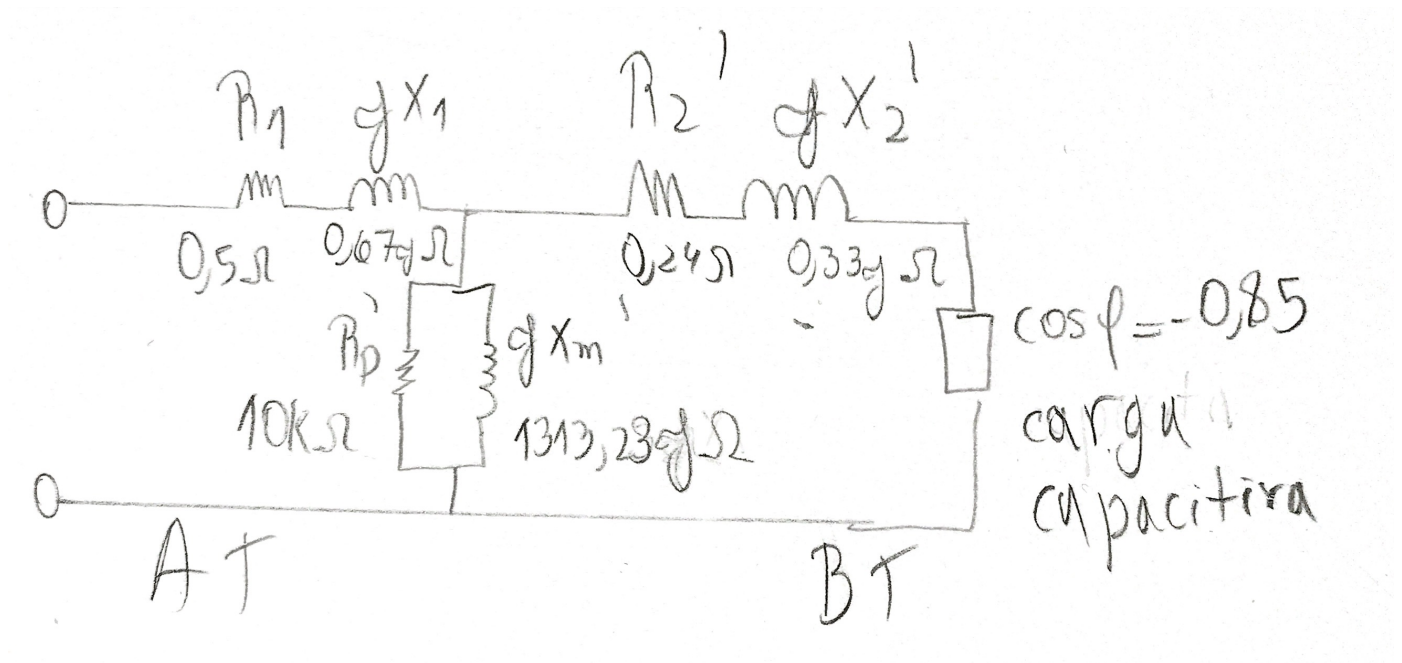 R1 jX1 R2' jX2'
0,5Ω 0,67jΩ 0,24Ω 0,33jΩ
Rp' jXm'
10kΩ 1313,23jΩ
cosφ=-0,85
carga
capacitiva
AT BT